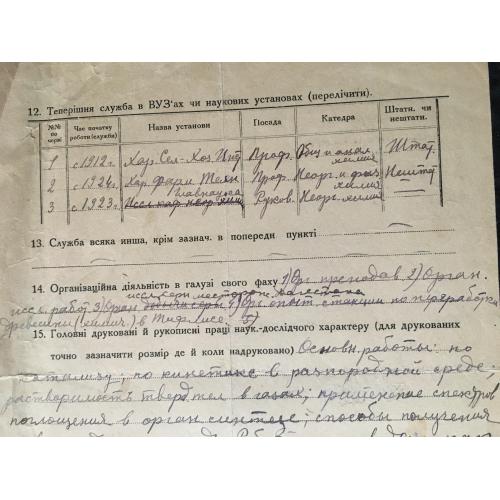 12. Теперішня служба в ВУЗ'ах чи наукових установах (перелічити).
№№ по черзі Час початку роботи (служби) Назва установи Посада Катедра Штатн. чи нештатн.
1 с 1912 г. Хар. Сел-Хоз. Инт Проф. Общ и анал. химия Штат.
2 с 1924 г. Хар. Фарм. Техн Проф. Неорг. и физ. химия Нештат
3 с 1923 г. Руков. Неорг. химия —
13. Служба всяка инша, крім зазнач. в попередн пункті —
14. Організаційна діяльність в галузі свого фаху 1) Орг. преподав. 2) Орган.
иссл. работ 3) Орган 4) Орг. опыт. станции по переработке
древесины (химич.) в Тифлисе. 5)
15. Головні друковані й рукописні праці наук.-дослідчого характеру (для друкованих
точно зазначити розмір де й коли надруковано) Основн. работы: по
катализу; по кинетике в разнородной среде;
растворимость тверд. тел в газах; применение спектров
поглощения в орган синтезе; способы получения